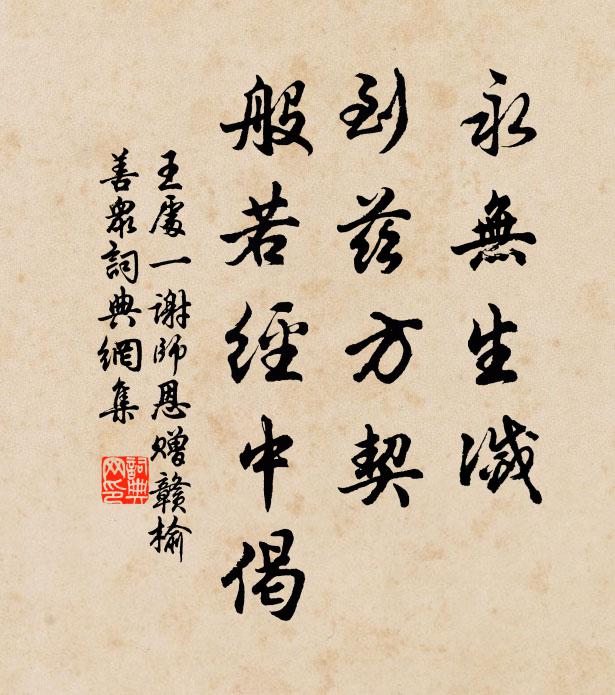 永無生滅
到茲方契
般若經中偈
王處一謝師恩贈贛榆
善衆詞典網集
詞典
网印